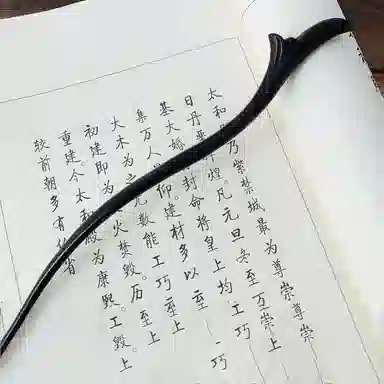 太和乃紫禁城最为尊崇尊崇
日丹煌。凡元旦冬至万崇上
基大婚封命将皇上均工巧
集万人仰。建材多以至巧
大木为之无数能工巧至上
初建即为火焚毁。历至上
重建。今太和殿为康毁。工毁。上
较前朝多有省